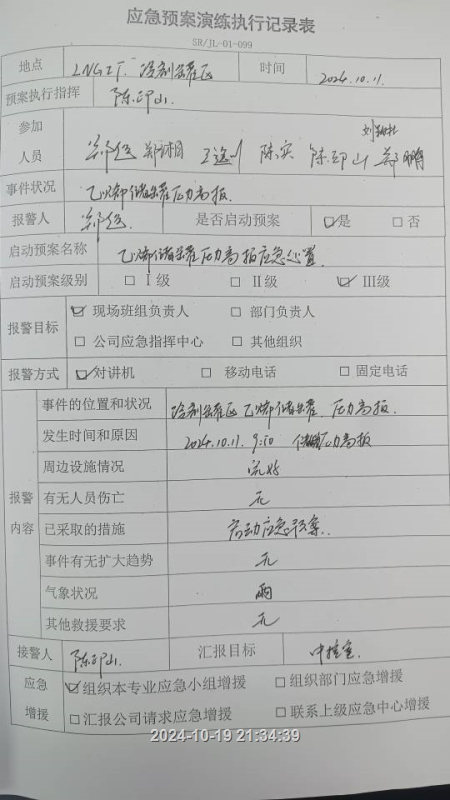 应急预案演练执行记录表
SR/JL-01-099
地点 LNG工厂 冷剂罐区 时间 2024.10.11.
预案执行指挥 陈印山.
参加人员 陈实 陈印山
事件状况 乙烯储罐压力高报.
报警人 是否启动预案 ☑是 □否
启动预案名称 乙烯储罐压力高报应急处置
启动预案级别 □Ⅰ级 □Ⅱ级 ☑Ⅲ级
报警目标 ☑现场班组负责人 □部门负责人
□公司应急指挥中心 □其他组织
报警方式 ☑对讲机 □移动电话 □固定电话
报警内容
事件的位置和状况 冷剂罐区乙烯储罐 压力高报.
发生时间和原因 2024.10.11. 9:50 压力高报
周边设施情况 完好
有无人员伤亡 无
已采取的措施 启动应急预案.
事件有无扩大趋势 无
气象状况 雨
其他救援要求 无
接警人 陈印山. 汇报目标 中控室
应急增援 ☑组织本专业应急小组增援 □组织部门应急增援
□汇报公司请求应急增援 □联系上级应急中心增援
2024-10-19 21:34:39